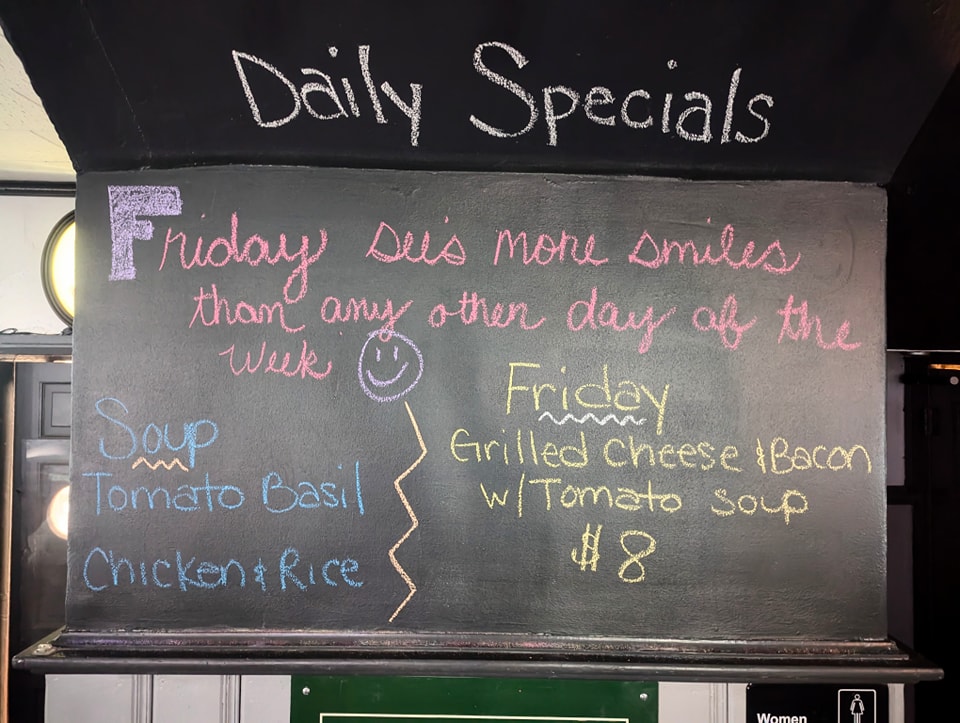 Daily Specials
Friday see's more smiles
than any other day of the
Week
Soup
Tomato Basil
Chicken & Rice
Friday
Grilled Cheese & Bacon
w/Tomato Soup
$8
Women